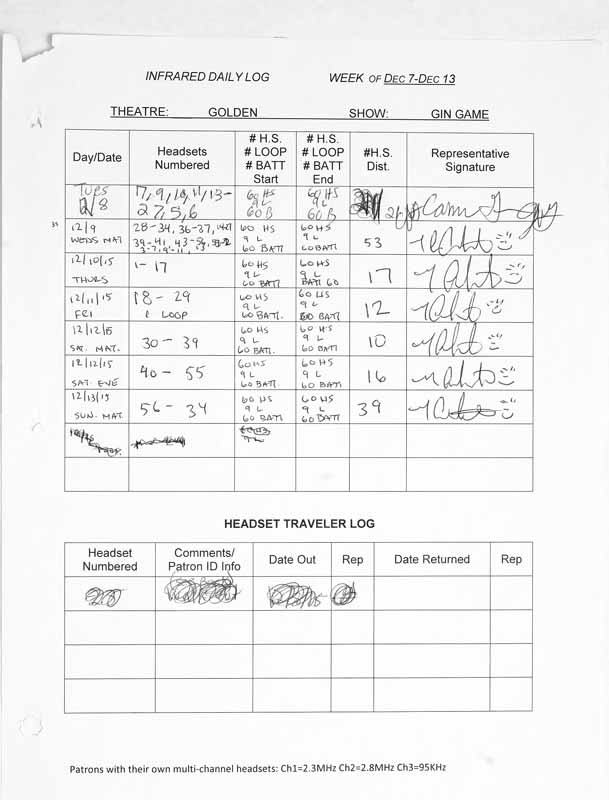 INFRARED DAILY LOG WEEK OF DEC 7-DEC 13
THEATRE: GOLDEN SHOW: GIN GAME
Day/Date
Headsets Numbered
# H.S. # LOOP # BATT Start
# H.S. # LOOP # BATT End
#H.S. Dist.
Representative Signature
TUES 12/8
17, 9, 10, 11, 13-
27, 5, 6
60 HS 9 L 60 B
60 HS 9 L 60 B
12/9 WEDS MAT
28-34, 36-37,
39-41, 43-54,
60 HS 9 L 60 BATT
60 HS 9 L 60 BATT
53
12/10/15 THURS
1-17
60 HS 9 L 60 BATT
60 HS 9 L BATT 60
17
12/11/15 FRI
18 - 29
1 LOOP
60 HS 9 L 60 BATT.
60 HS 9 L 60 BATT
12
12/12/15 SAT. MAT.
30 - 39
60 HS 9 L 60 BATT.
60 HS 9 L 60 BATT
10
12/12/15 SAT. EVE
40 - 55
60 HS 9 L 60 BATT
60 HS 9 L 60 BATT
16
12/13/15 SUN. MAT.
56 - 34
60 HS 9 L 60 BATT
60 HS 9 L 60 BATT
39
HEADSET TRAVELER LOG
Headset Numbered
Comments/ Patron ID Info
Date Out
Rep
Date Returned
Rep
Patrons with their own multi-channel headsets: Ch1=2.3MHz Ch2=2.8MHz Ch3=95KHz